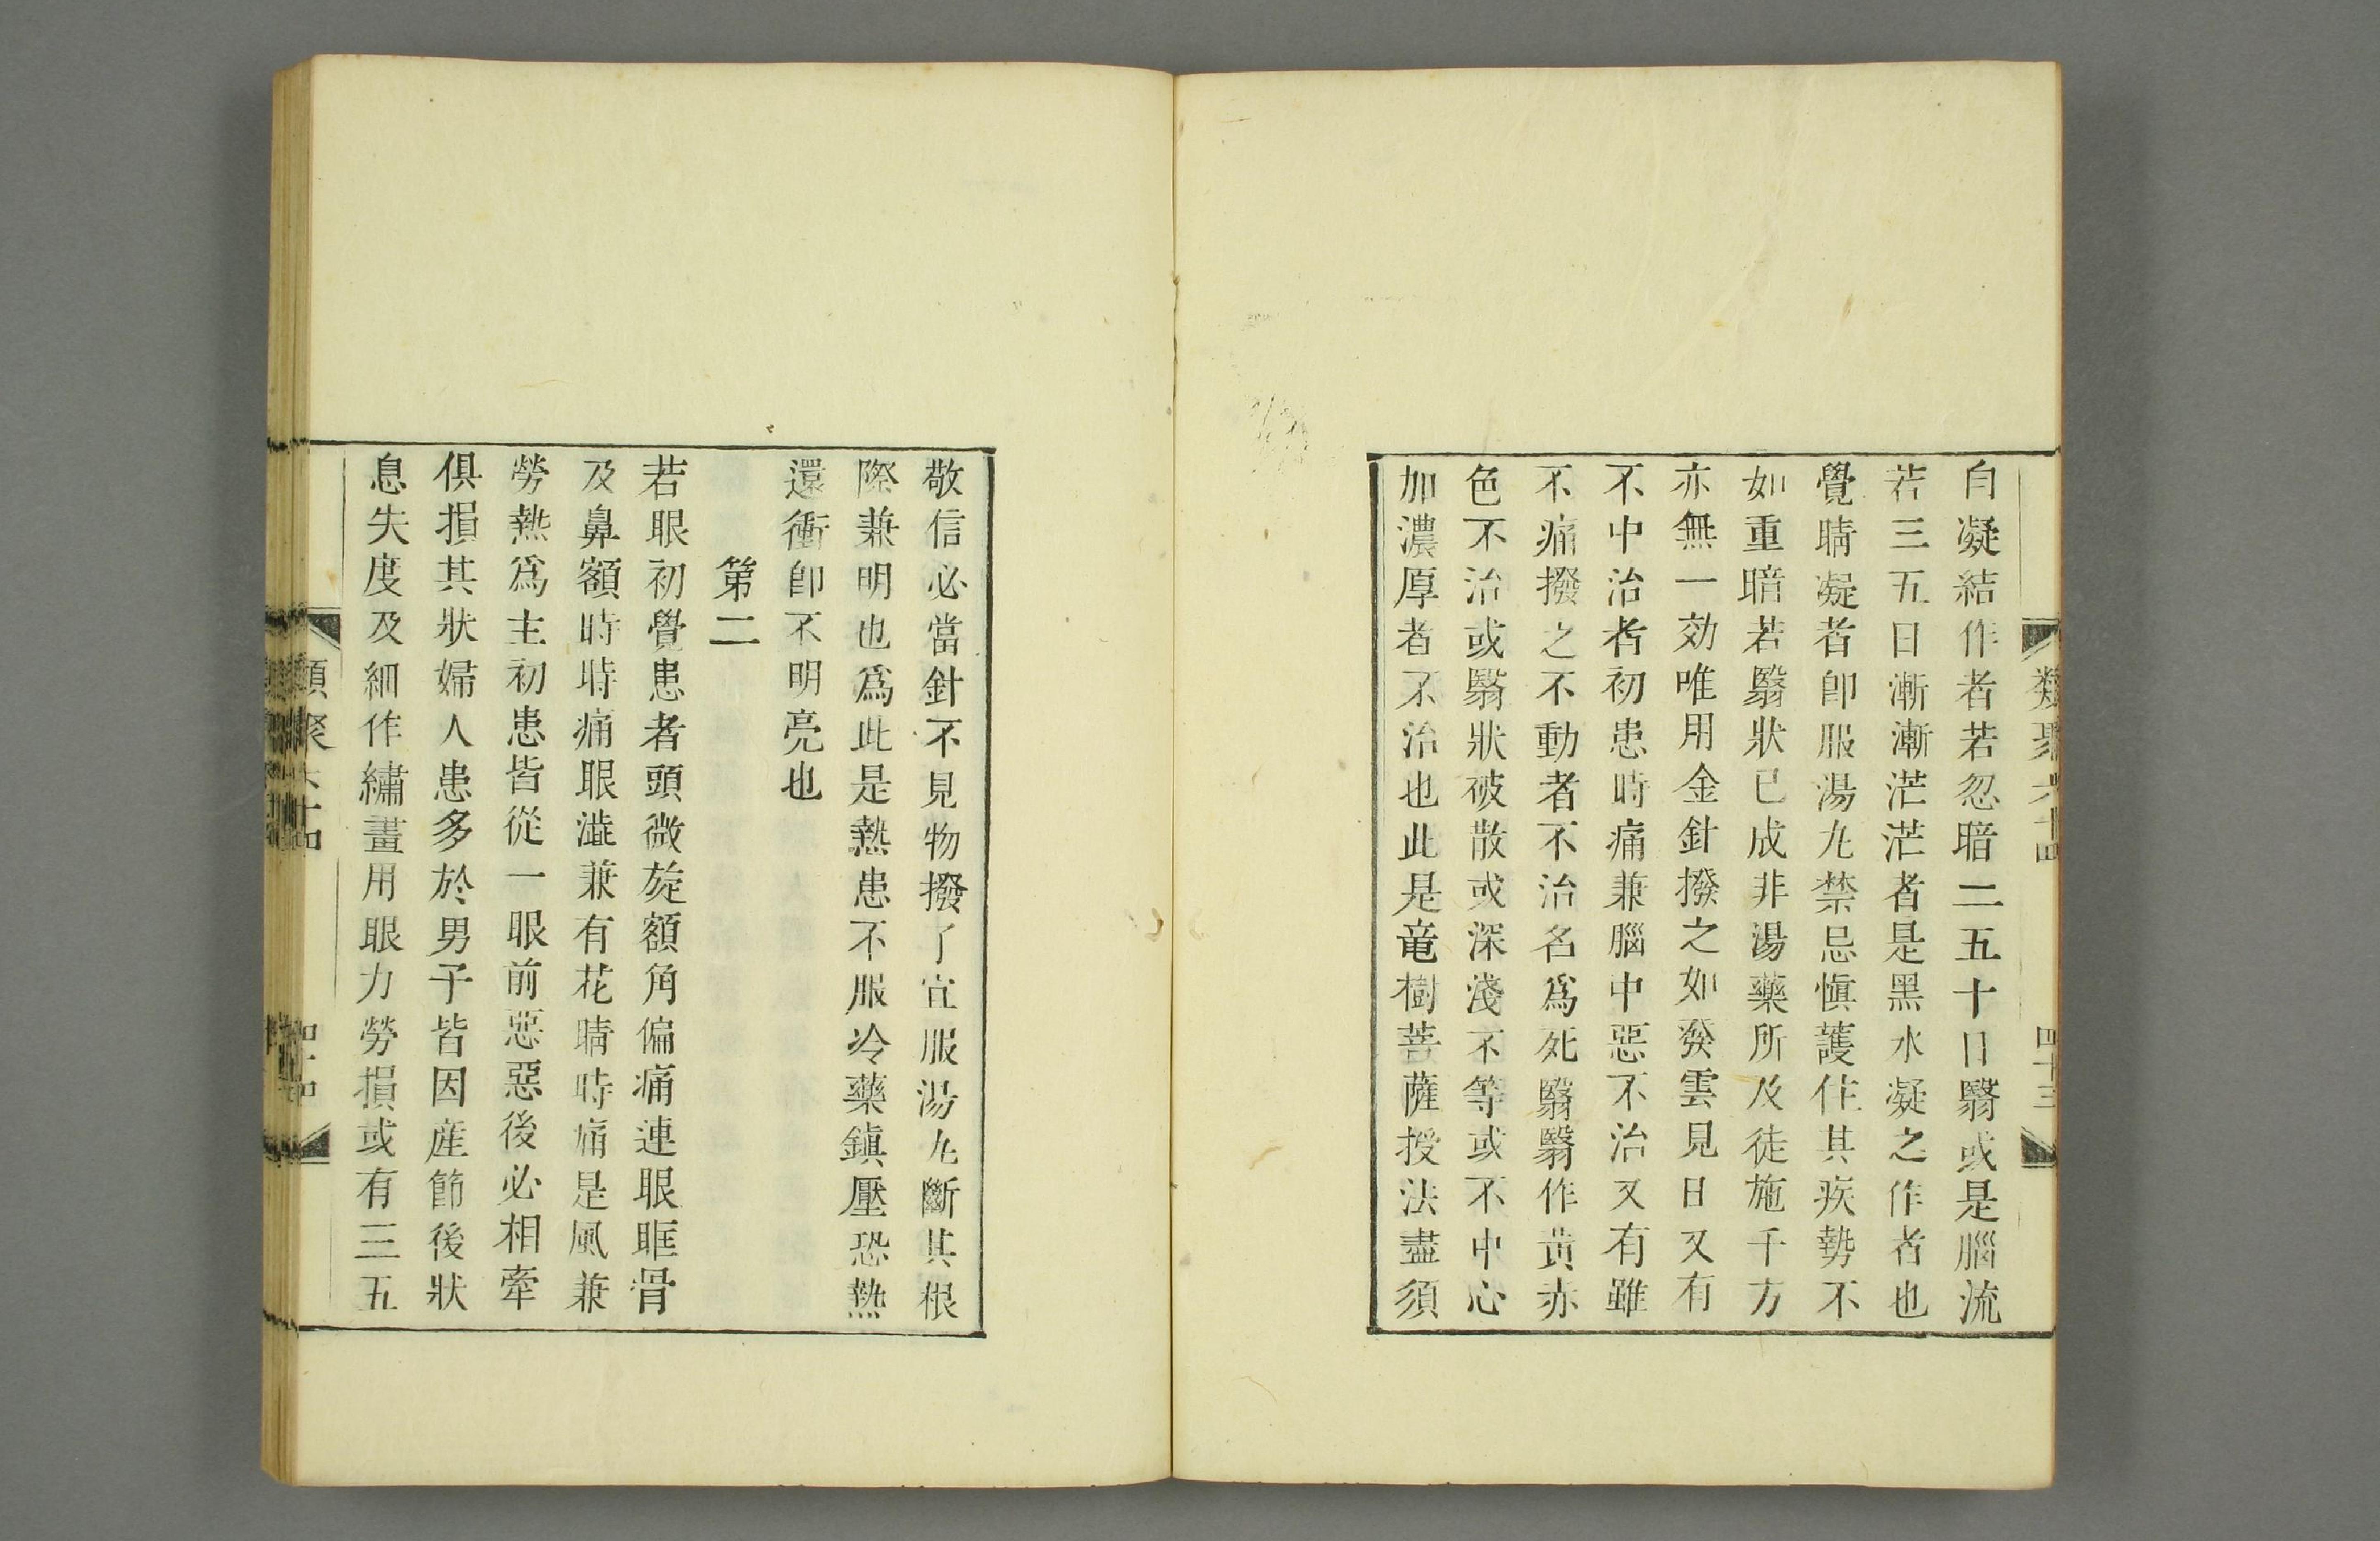 類聚六十四　四十三
自凝結作者若忽暗二五十日翳或是腦流
若三五日漸漸茫茫者是黑水凝之作者也
覺睛凝者卽服湯丸禁忌愼護住其疾勢不
如重暗若翳狀已成非湯藥所及徒施千方
亦無一効唯用金針撥之如發雲見日又有
不中治者初患時痛兼腦中惡不治又有雖
不痛撥之不動者不治名爲死翳翳作黃赤
色不治或翳狀破散或深淺不等或不中心
加濃厚者不治也此是竜樹菩薩授法盡須
敬信必當針不見物撥了宜服湯丸斷其根
際兼明也爲此是熱患不服冷藥鎭壓恐熱
還衝卽不明亮也
第二
若眼初覺患者頭微旋額角偏痛連眼眶骨
及鼻額時時痛眼澁兼有花睛時痛是風兼
勞熱爲主初患皆從一眼前惡惡後必相牽
俱損其狀婦人患多於男子皆因産節後狀
息失度及細作繡畫用眼力勞損或有三五
類聚六十四　四十四